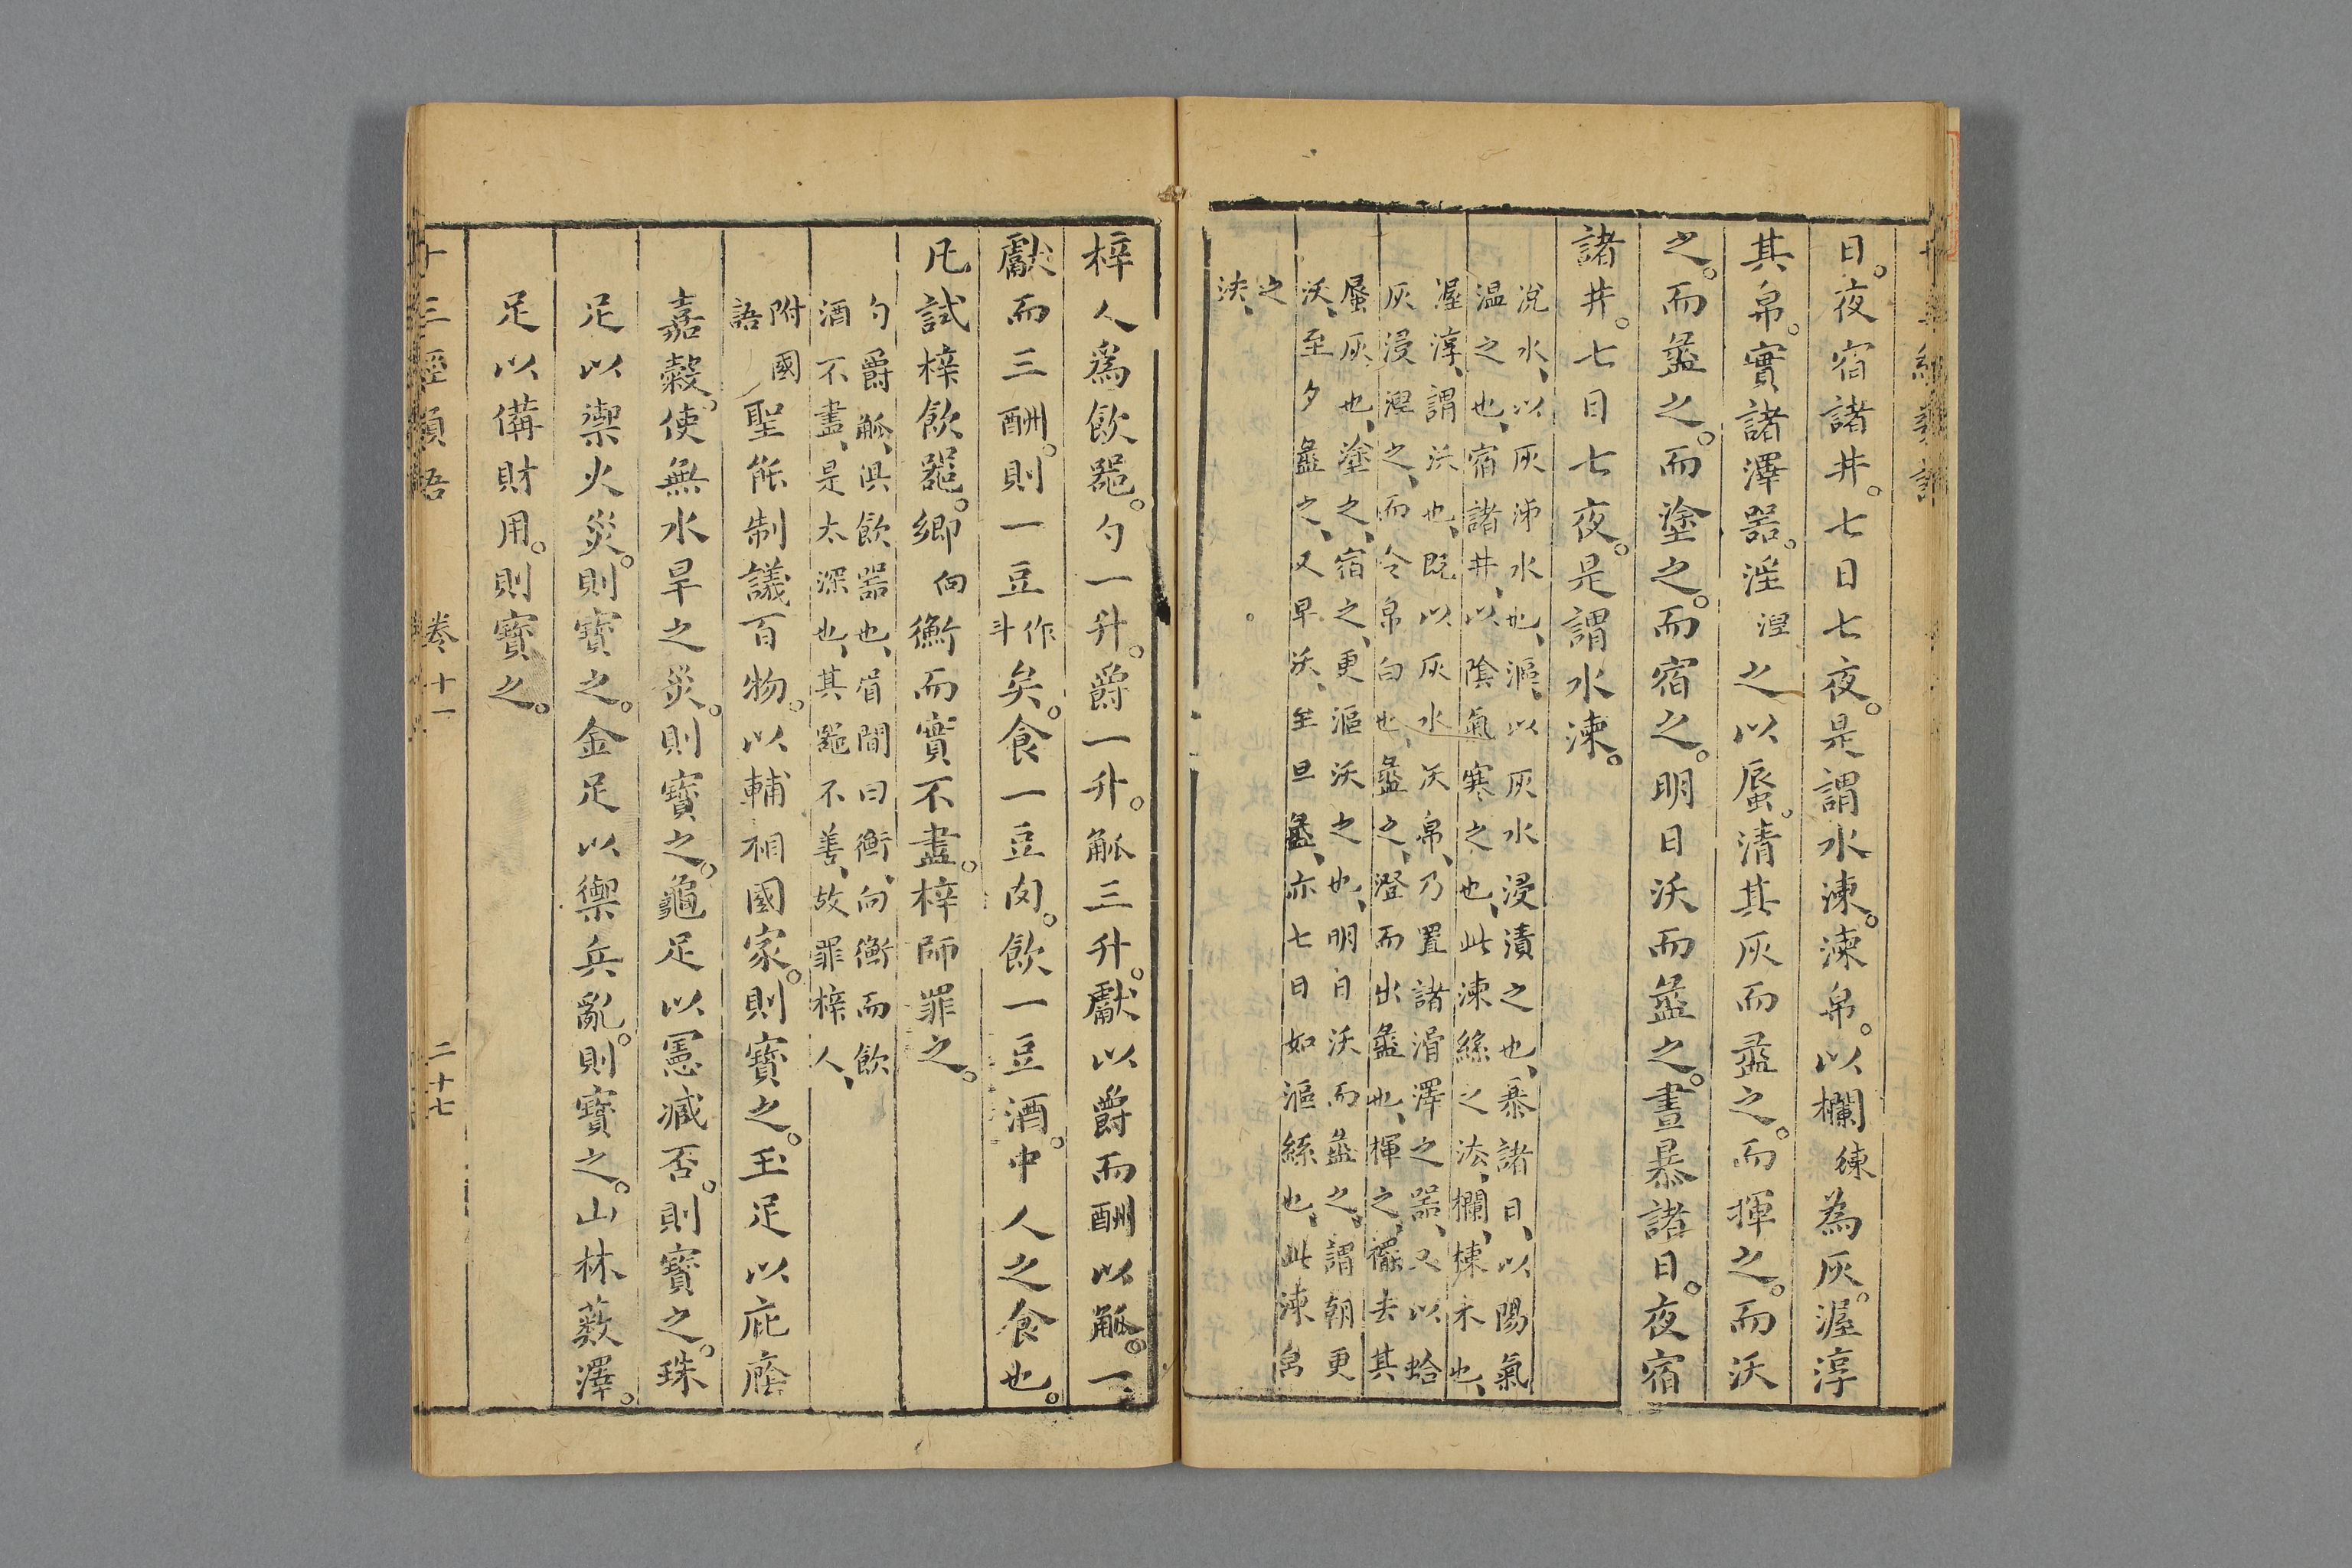 日。夜宿諸井。七日七夜。是謂水湅。湅帛。以欄湅為灰。渥淳
其帛。實諸澤器。淫涅之以蜃。清其灰而盝之。而揮之。而沃
之。而盝之。而塗之。而宿之。明日沃而盝之。晝暴諸日。夜宿
諸井。七日七夜。是謂水湅。
涗水、以灰沛水也、漚、以灰水浸漬之也、暴諸日、以陽氣
温之也、宿諸井、以陰氣寒之也、此湅絲之法、欄、楝木也、
渥淳、謂沃也、既以灰水沃帛、乃置諸滑澤之器、又以蛤
灰浸涅之、而令帛白也、盝之、澄而出盝也、揮之、襬去其
蜃灰也、塗之、宿之、更漚沃之也、明日沃而盝之、謂朝更
沃、至夕盝之、又早沃、至旦盝、亦七日如漚絲也、此湅帛
之
法、
梓人爲飲器。勺一升。爵一升。觚三升。獻以爵而酬以觚。一
獻而三酬。則一豆作斗矣。食一豆肉。飲一豆酒。中人之食也。
凡試梓飲器。鄉向衡而實不盡。梓師罪之。
勺爵觚、俱飲器也、眉間曰衡、向衡而飲
酒不盡、是太深也、其器不善、故罪梓人、
附國語
聖能制議百物。以輔相國家。則寶之。玉足以庇廕
嘉穀。使無水旱之災。則寶之。龜足以憲臧否。則寶之。珠
足以禦火災。則寶之。金足以禦兵亂。則寶之。山林藪澤。
足以備財用。則寶之。
十三經類語 卷十一 二十七